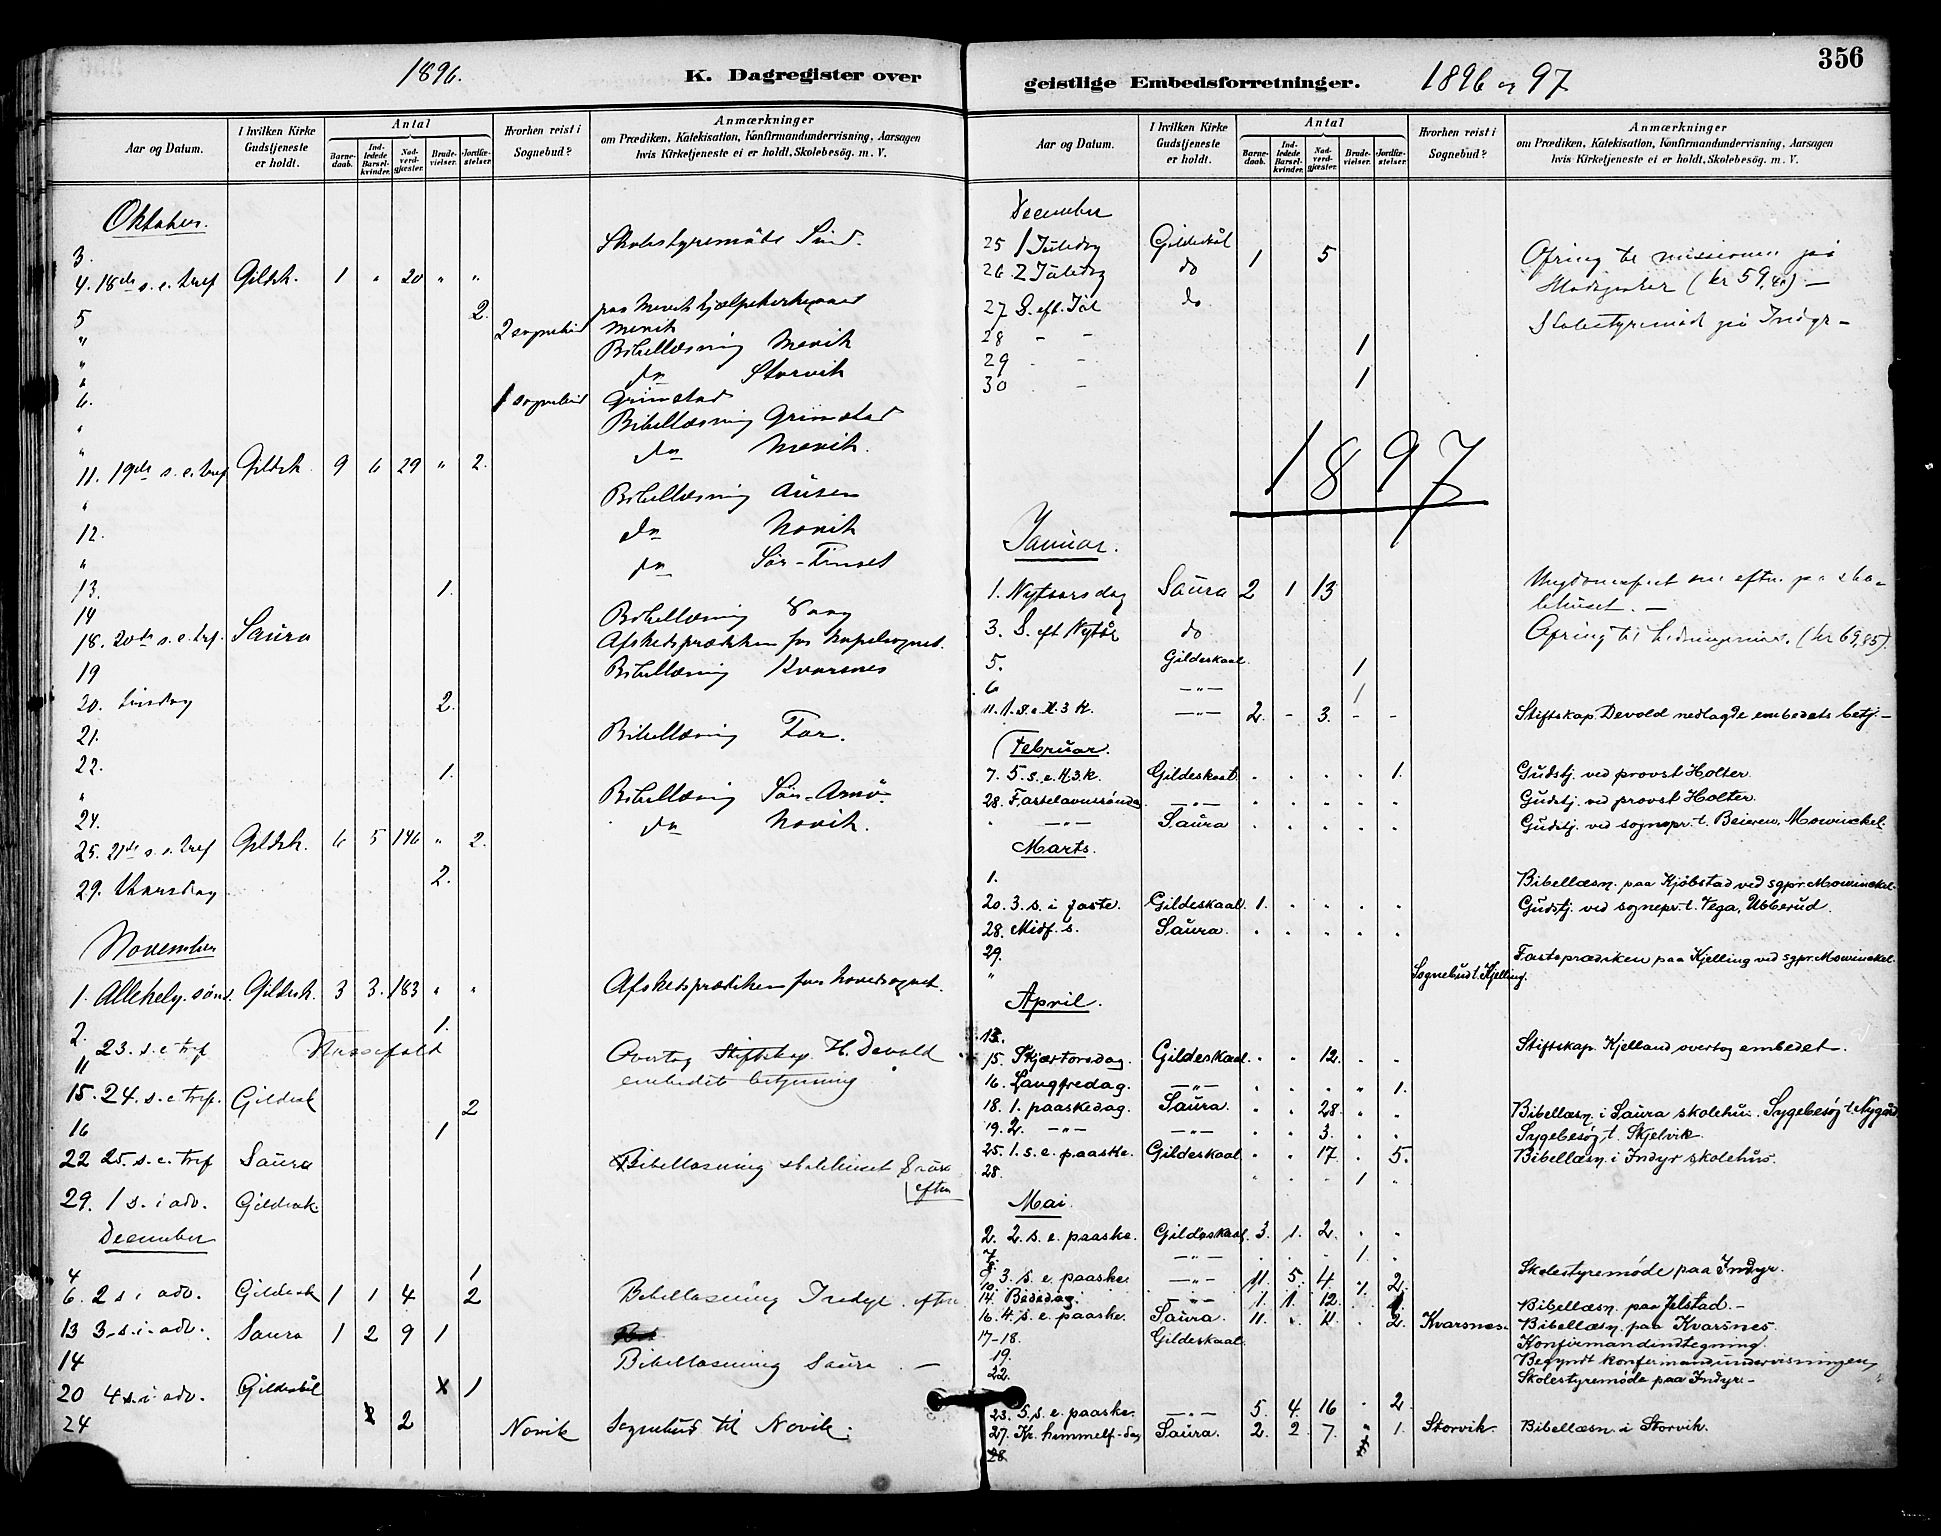 1896.
K. Dagregister over
Aar og Datum.
I hvilken Kirke Gudstjeneste er holdt.
Antal
Barnedaab.
Indledede Barselkvinder.
Nadverdgjæster.
Brudevielser.
Jordfæstelser.
Hvorhen reist i Sognebud?
Anmærkninger
om Prædiken, Katekisation, Konfirmandundervisning, Aarsagen
hvis Kirketjeneste ei er holdt, Skolebesøg. m. V.
Oktober.
3. Skolestyremöte Sund.
4. 18de s. e. tref Gildsk. 1 " 20 " "
5 2.
" 2 sognebud Mevik
" Bibellæsning Mevik
" do Storvik
6. 1 sognebud Grimstad
" Bibellæsning Grimstad
" do Mevik.
11. 19de s. e. tref Gildsk. 9 6 29 " 2.
" Bibellæsning Ausen
12. do Novik
" do Sör-Finset
13. 1.
14 Bibellæsning Vaag
18. 20de s. e. tref. Saura Afskedsprædiken for kapelsognet.
19 Bibellæsning Kvarsnes
20. tirsdag 2.
21. Bibellæsning For.
22. 1.
" Bibellæsning Sör-Arnö.
24. do Novik.
25. 21de s. e. tref Gildsk. 6 5 146 " 2.
29. thorsdag 2.
November
1. Allehelg. sönd. Gildesk. 3 3. 183 " " Afskedsprædiken for hovedsognet.
2. 1.
11 23. s. e. tref Overtog Stiftskap. H. Devold
embedets betjening
15. 24. s. e. tref. Gildesk 2
16 1
22 25. s. e. tref Saura Bibellæsning skolehuset Saura
eftm
29. 1 s. i adv. Gildesk.
December
4 1
6. 2 s i adv. Gildesk 1 1 4 2 Bibellæsning Indyr. eftm
13 3. s. i. adv. Saura 1 2 9 1
14 Bibellæsning Saura. —
20 4 s. i. adv. Gildeskål 1
24 2 Novik Sognebud til Novik.
356
geistlige Embedsforretninger.
1896 og 97
Aar og Datum.
I hvilken Kirke Gudstjeneste er holdt.
Antal
Barnedaab.
Indledede Barselkvinder.
Nadverdgjæster.
Brudevielser.
Jordfæstelser.
Hvorhen reist i Sognebud?
Anmærkninger
om Prædiken, Katekisation, Konfirmandundervisning, Aarsagen
hvis Kirketjeneste ei er holdt, Skolebesøg. m. V.
December
25 1 Juledag Gildeskål
26. 2 Juledag do 1 5 Ofring til missionen på
27 S. eft. Jul do
28 - - 1 Skolestyremöd på Indyr -
29 -
30 - 1
1897
Januar.
1. Nytaarsdag Saura 2 1 13
3. S. eft Nytår do
5. Gildeskaal. 1
6 — " — 1
11. 1. s. e. H. 3 K. — " — 2. - 3. - - Stiftskap. Devold nedlagde embedets betj -
Februar.
7. 5. s. e. H. 3 K. Gildeskaal. . . . . 1. Gudstj. ved provst Holter.
28. Fastelavnssöndag. — " — . . . . . Gudstj. ved provst Holter.
" — " — Saura . . . . . Gudstj. ved sognepr. t. Beieren, Mowinckel.
Marts.
1. Bibellæsn. paa Kjöbstad ved sgpr. Mowinckel.
20. 3. s. i faste. Gildeskaal. 1. . . . . Gudstj. ved sognepr. t. Vega, Ubberud.
28. Midf. s. Saura. . . . . .
29. Fasteprædiken paa Kjelling ved sgpr. Mowinckel.
" Sognebud t. Kjelling.
April.
13. Stiftskap. Kjelland overtog embedet.
15. Skjærtorsdag. Gildeskaal. . . 12. . .
16. Langfredag. — " — . . . " 1.
18. 1. paaskedag. Saura. . . 28. . . Bibellæsn. i Saura skolehus. Sygebesög t. Nygård
19. 2. — " — — " — . . 3. . . Sygebesög t. Skjelvik.
25. 1. s. e. paaske. Gildeskaal . . 17. . 5. Bibellæsn. i Indyr skolehus.
28. . . . 1 .
Mai.
2. 2. s. e. paaske. Gildeskaal. 3. 1. 2. . .
7. — " — . . . 1. .
Skolestyremöde paa Indyr.
9. 3. s. e. paaske. — " — 11. 5. 4. 2.
14. Bededag. — " — 1. 1. 12. . 1. Bibellæsn. paa Jelstad. -
16. 4. s. e. paaske. Saura. 11. . 4. . 2. Kvarsnes. Bibellæsn. paa Kvarsnes.
17-18. Gildeskaal. Konfirmandindtegning.
19. Begyndt konfirmandundervisningen,
22. Skolestyremöde paa Indyr. -
23. 5. s. e. paaske. — " — 5. 4. 16 . 2.
27. Kr. himmelf-dag Saura. 2. 2 7. " 1. Storvik. Bibellæsn. i Storvik.
28